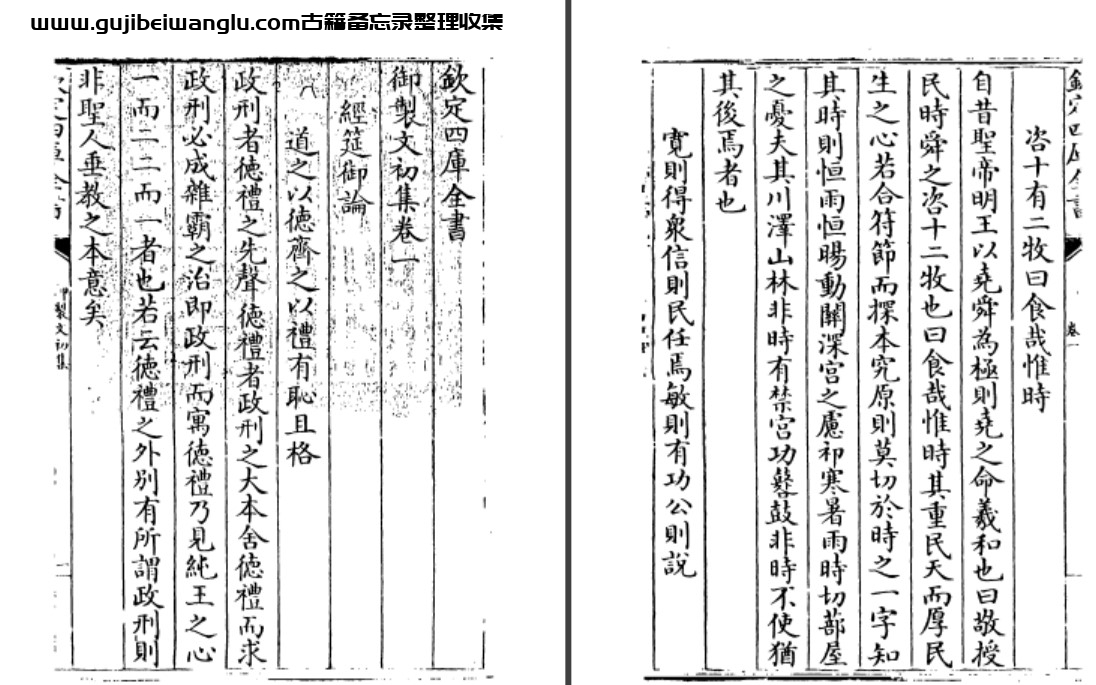 www.gujibeiwanglu.com古籍备忘录整理收集
欽定四庫全書
御製文初集卷一
經筵御論
道之以徳齊之以禮有恥且格
政刑者徳禮之先聲徳禮者政刑之大本舍徳禮而求
政刑必成雜霸之治即政刑而寓徳禮乃見純王之心
一而二二而一者也若云徳禮之外别有所謂政刑則
非聖人垂教之本意矣
製文初集
欽定四庫全書
卷一
咨十有二牧曰食哉惟時
自昔聖帝明王以堯舜為極則堯之命羲和也曰敬授
民時舜之咨十二牧也曰食哉惟時其重民天而厚民
生之心若合符節而探本究原則莫切於時之一字知
其時則恒雨恒暘動關深宫之慮祁寒暑雨時切蔀屋
之憂夫其川澤山林非時有禁宫功鼛鼓非時不使猶
其後焉者也
寛則得衆信則民任焉敏則有功公則說